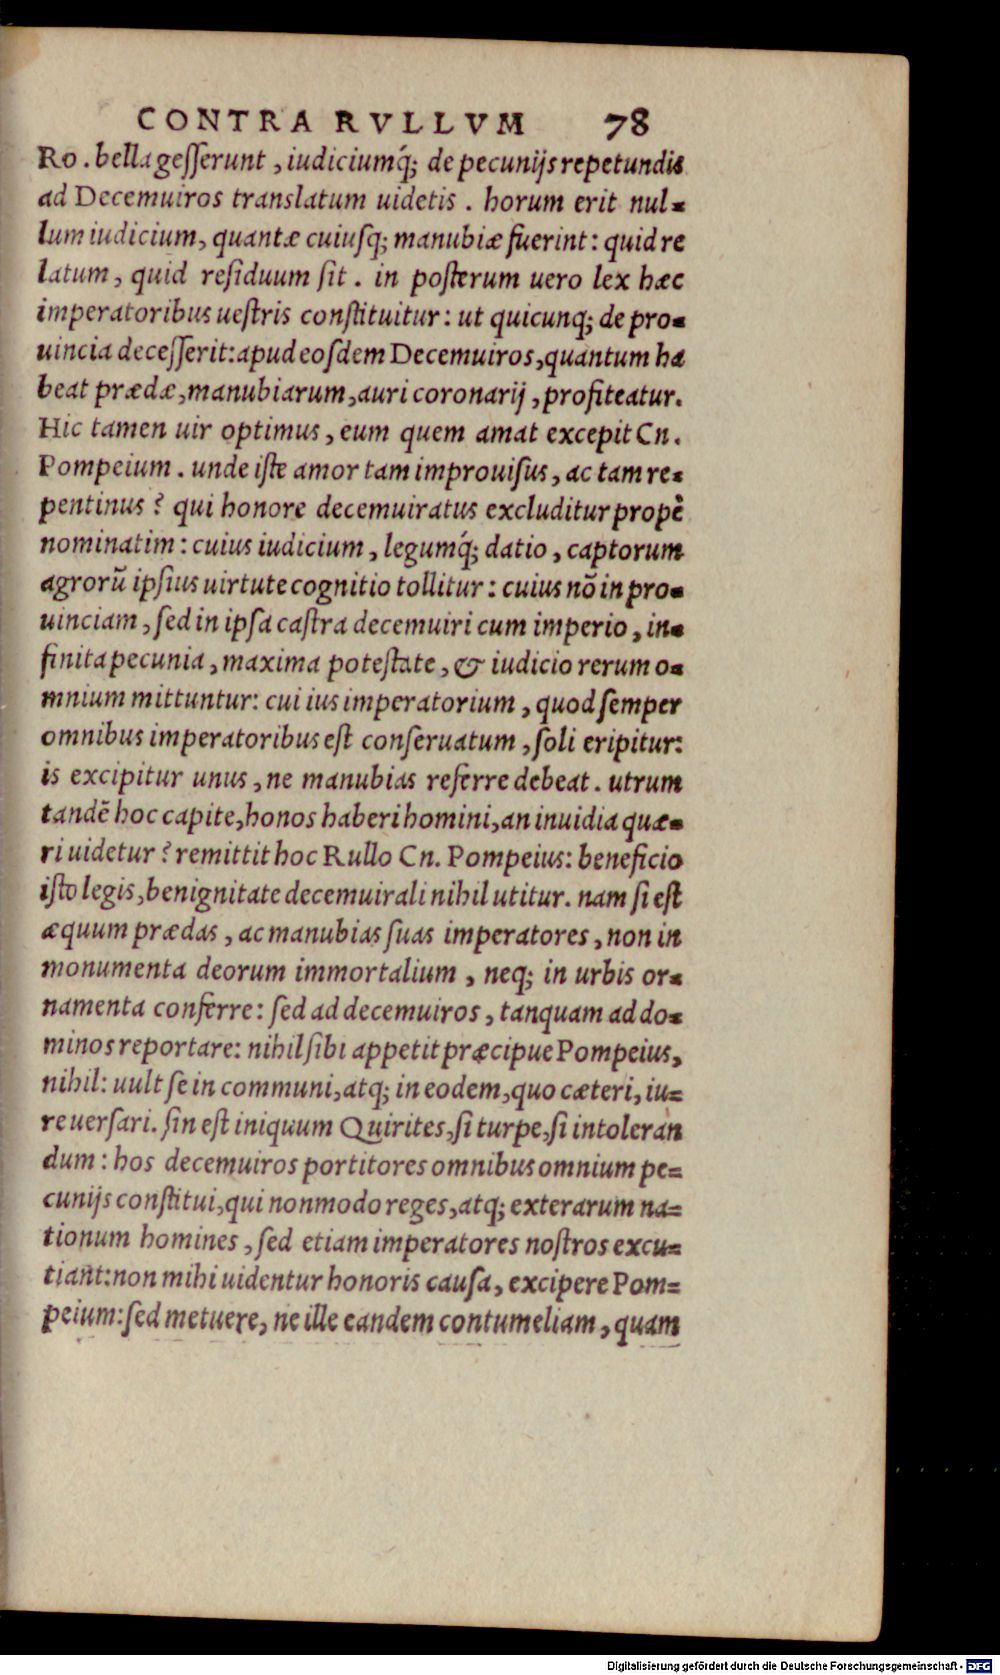 CONTRA RVLLVM 78
Ro. bella geſſerunt, iudiciumq́; de pecunijs repetundis
ad Decemuiros translatum uidetis. horum erit nul-
lum iudicium, quantæ cuiuſq; manubiæ fuerint: quid re
latum, quid reſiduum ſit. in poſterum uero lex hæc
imperatoribus ueſtris conſtituitur: ut quicunq; de pro-
uincia deceſſerit: apud eoſdem Decemuiros, quantum ha
beat prædæ, manubiarum, auri coronarij, profiteatur.
Hic tamen uir optimus, eum quem amat excepit Cn.
Pompeium. unde iſte amor tam improuiſus, ac tam re-
pentinus? qui honore decemuiratus excluditur propè
nominatim: cuius iudicium, legumq́; datio, captorum
agrorũ ipſius uirtute cognitio tollitur: cuius nõ in pro-
uinciam, ſed in ipſa caſtra decemuiri cum imperio, in-
finita pecunia, maxima poteſtate, & iudicio rerum o-
mnium mittuntur: cui ius imperatorium, quod ſemper
omnibus imperatoribus eſt conſeruatum, ſoli eripitur:
is excipitur unus, ne manubias referre debeat. utrum
tandẽ hoc capite, honos haberi homini, an inuidia quæ-
ri uidetur? remittit hoc Rullo Cn. Pompeius: beneficio
iſto legis, benignitate decemuirali nihil utitur. nam ſi eſt
æquum prædas, ac manubias ſuas imperatores, non in
monumenta deorum immortalium, neq; in urbis or-
namenta conferre: ſed ad decemuiros, tanquam ad do-
minos reportare: nihil ſibi appetit præcipue Pompeius,
nihil: uult ſe in communi, atq; in eodem, quo cæteri, iu-
re uerſari. ſin eſt iniquum Quirites, ſi turpe, ſi intoleran
dum: hos decemuiros portitores omnibus omnium pe-
cunijs conſtitui, qui nonmodo reges, atq; exterarum na-
tionum homines, ſed etiam imperatores noſtros excu-
tiant: non mihi uidentur honoris cauſa, excipere Pom-
peium: ſed metuere, ne ille eandem contumeliam, quam
Digitalisierung gefördert durch die Deutsche Forschungsgemeinschaft - DFG